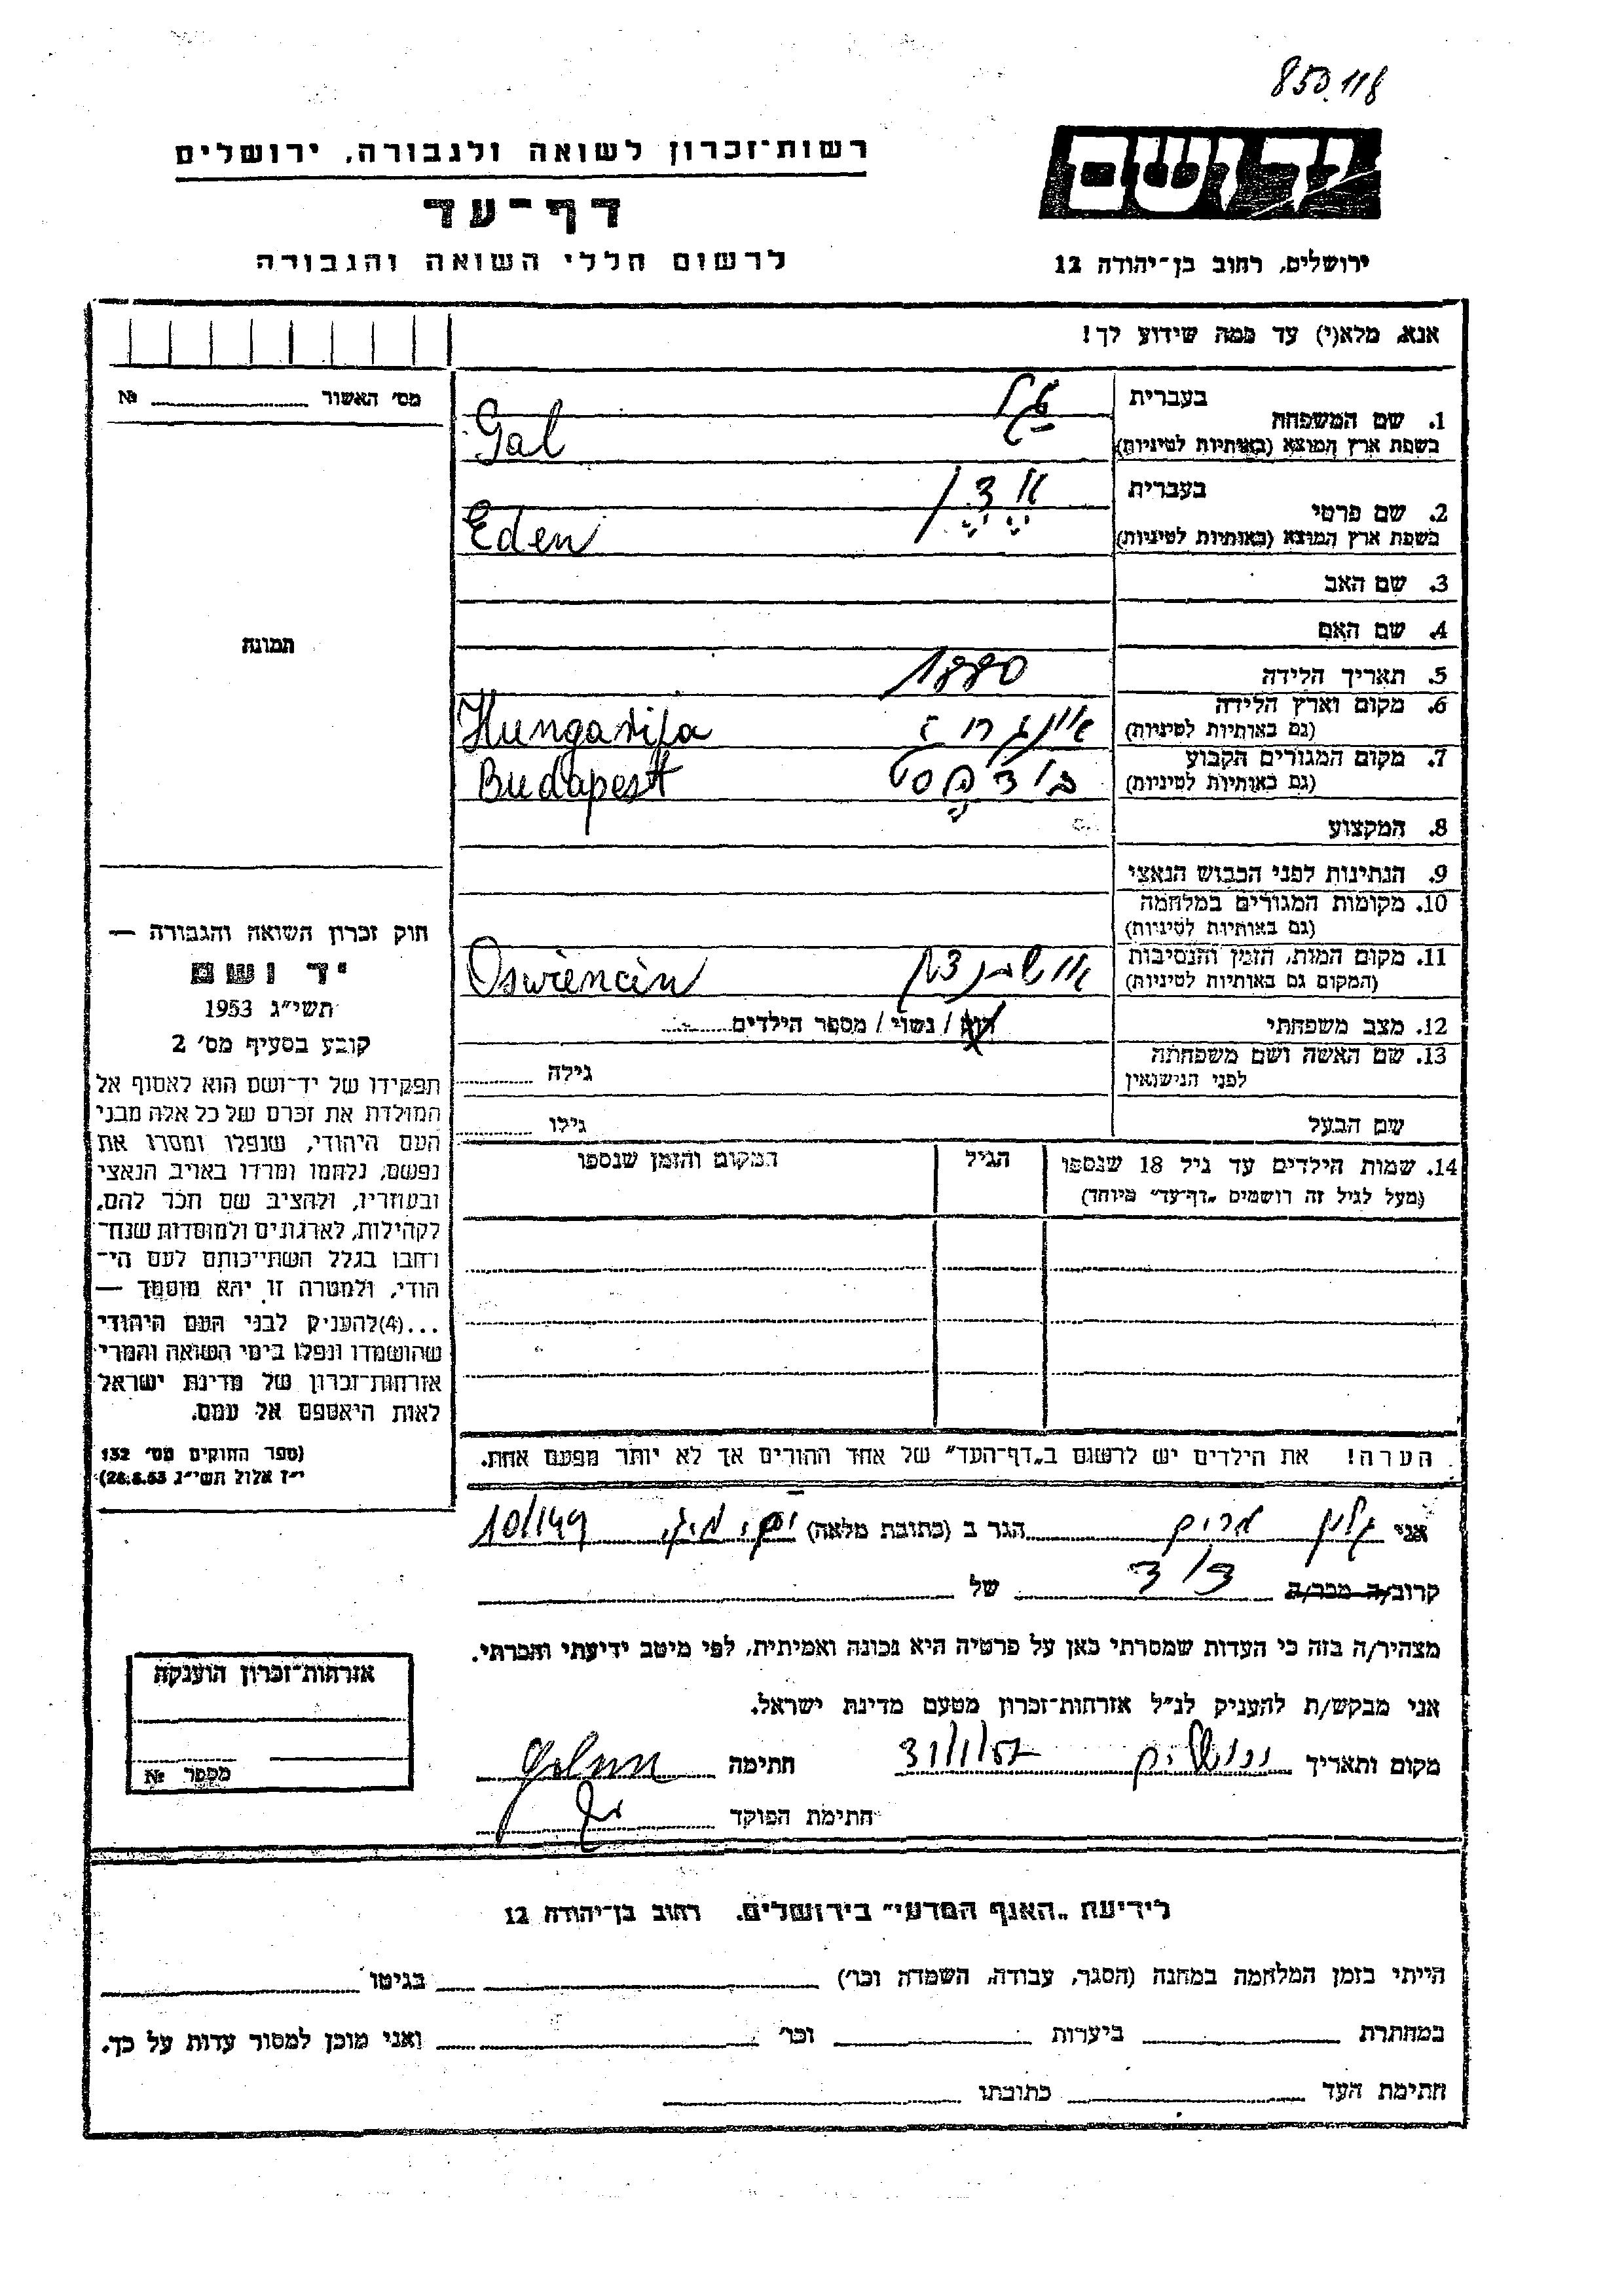 850.118
רשות־זכרון לשואה ולגבורה, ירושלים
יד ושם
דף־עד
לרשום חללי השואה והגבורה
ירושלים, רחוב בן־יהודה 12
אנא, מלא(י) עד כמה שידוע לך!
מס׳ האשור № 
1. שם המשפחה
בעברית גל
בשפת ארץ המוצא (באותיות לטיניות) Gal
2. שם פרטי
בעברית אדן
בשפת ארץ המוצא (באותיות לטיניות) Eden
3. שם האב
4. שם האם
תמונה
5. תאריך הלידה 1880
6. מקום וארץ הלידה
(גם באותיות לטיניות) Hungarija
7. מקום המגורים הקבוע
(גם באותיות לטיניות) בודפסט Budapest
8. המקצוע
9. הנתינות לפני הכבוש הנאצי
10. מקומות המגורים במלחמה
(גם באותיות לטיניות)
11. מקום המות, הזמן והנסיבות
(המקום גם באותיות לטיניות) Oswiencin
12. מצב משפחתי / נשוי / מספר הילדים
13. שם האשה ושם משפחתה
לפני הנישואין גילה
שם הבעל גילו
14. שמות הילדים עד גיל 18 שנספו הגיל המקום והזמן שנספו
(מעל לגיל זה רושמים „דף־עד״ מיוחד)
חוק זכרון השואה והגבורה —
יד ושם
תשי״ג 1953
קובע בסעיף מס׳ 2
תפקידו של יד־ושם הוא לאסוף אל
המולדת את זכרם של כל אלה מבני
העם היהודי, שנפלו ומסרו את
נפשם, נלחמו ומרדו באויב הנאצי
ובעוזריו, ולהציב שם וזכר להם,
לקהילות, לארגונים ולמוסדות שנח־
רבו בגלל השתייכותם לעם הי־
הודי, ולמטרה זו יהא מוסמך —
...(4) להעניק לבני העם היהודי
שהושמדו ונפלו בימי השואה והמרי
אזרחות־זכרון של מדינת ישראל
לאות היאספם אל עמם.
(ספר החוקים מס׳ 132
י״ז אלול תשי״ג 28.8.53)
הערה! את הילדים יש לרשום ב„דף־העד״ של אחד ההורים אך לא יותר מפעם אחת.
אני מרים הגר ב (כתובת מלאה) 10/149
קרוב/ה מכר/ה דוד של
מצהיר/ה בזה כי העדות שמסרתי כאן על פרטיה היא נכונה ואמיתית, לפי מיטב ידיעתי והכרתי.
אני מבקש/ת להעניק לנ״ל אזרחות־זכרון מטעם מדינת ישראל.
מקום ותאריך ירושלים 31/1/57 חתימה
חתימת הפוקד
אזרחות־זכרון הוענקה
מספר №
לידיעת „האגף המדעי״ בירושלים, רחוב בן־יהודה 12
הייתי בזמן המלחמה במחנה (הסגר, עבודה, השמדה וכו׳) בגיטו
במחתרת ביערות וכו׳ ואני מוכן למסור עדות על כך.
חתימת העד כתובתו